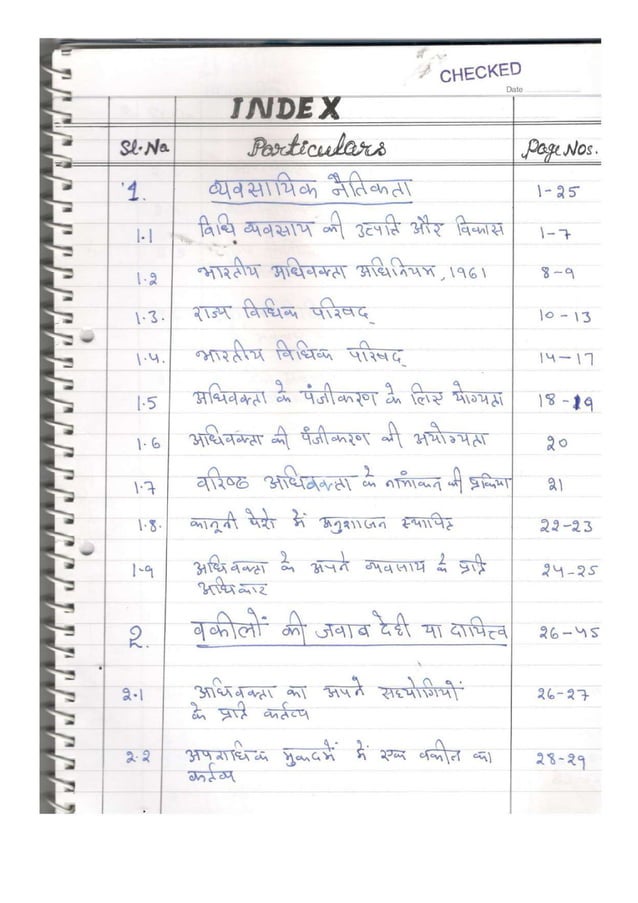 CHECKED
Date
INDEX
Sl.No Particulars Page Nos.
1. व्यवसायिक नैतिकता 1-25
1.1 विधि व्यवसाय की उत्पति और विकास 1-7
1.2 भारतीय अधिवक्ता अधिनियम, 1961 8-9
1.3. राज्य विधिक परिषद् 10-13
1.4. भारतीय विधिक परिषद् 14-17
1.5 अधिवक्ता के पंजीकरण के लिए योग्यता 18-19
1.6 अधिवक्ता की पंजीकरण की अयोग्यता 20
1.7 वरिष्ठ अधिवक्ता के नामांकन की प्रक्रिया 21
1.8. कानूनी पेशे में अनुशासन स्थापित 22-23
1.9 अधिवक्ता के अपने व्यवसाय के प्रति 24-25
अधिकार
2. वकीलों की जवाब देही या दायित्व 26-45
2.1 अधिवक्ता का अपने सहयोगियों 26-27
के प्रति कर्तव्य
2.2 अपराधिक मुकदमें में एक वकील का 28-29
कर्तव्य